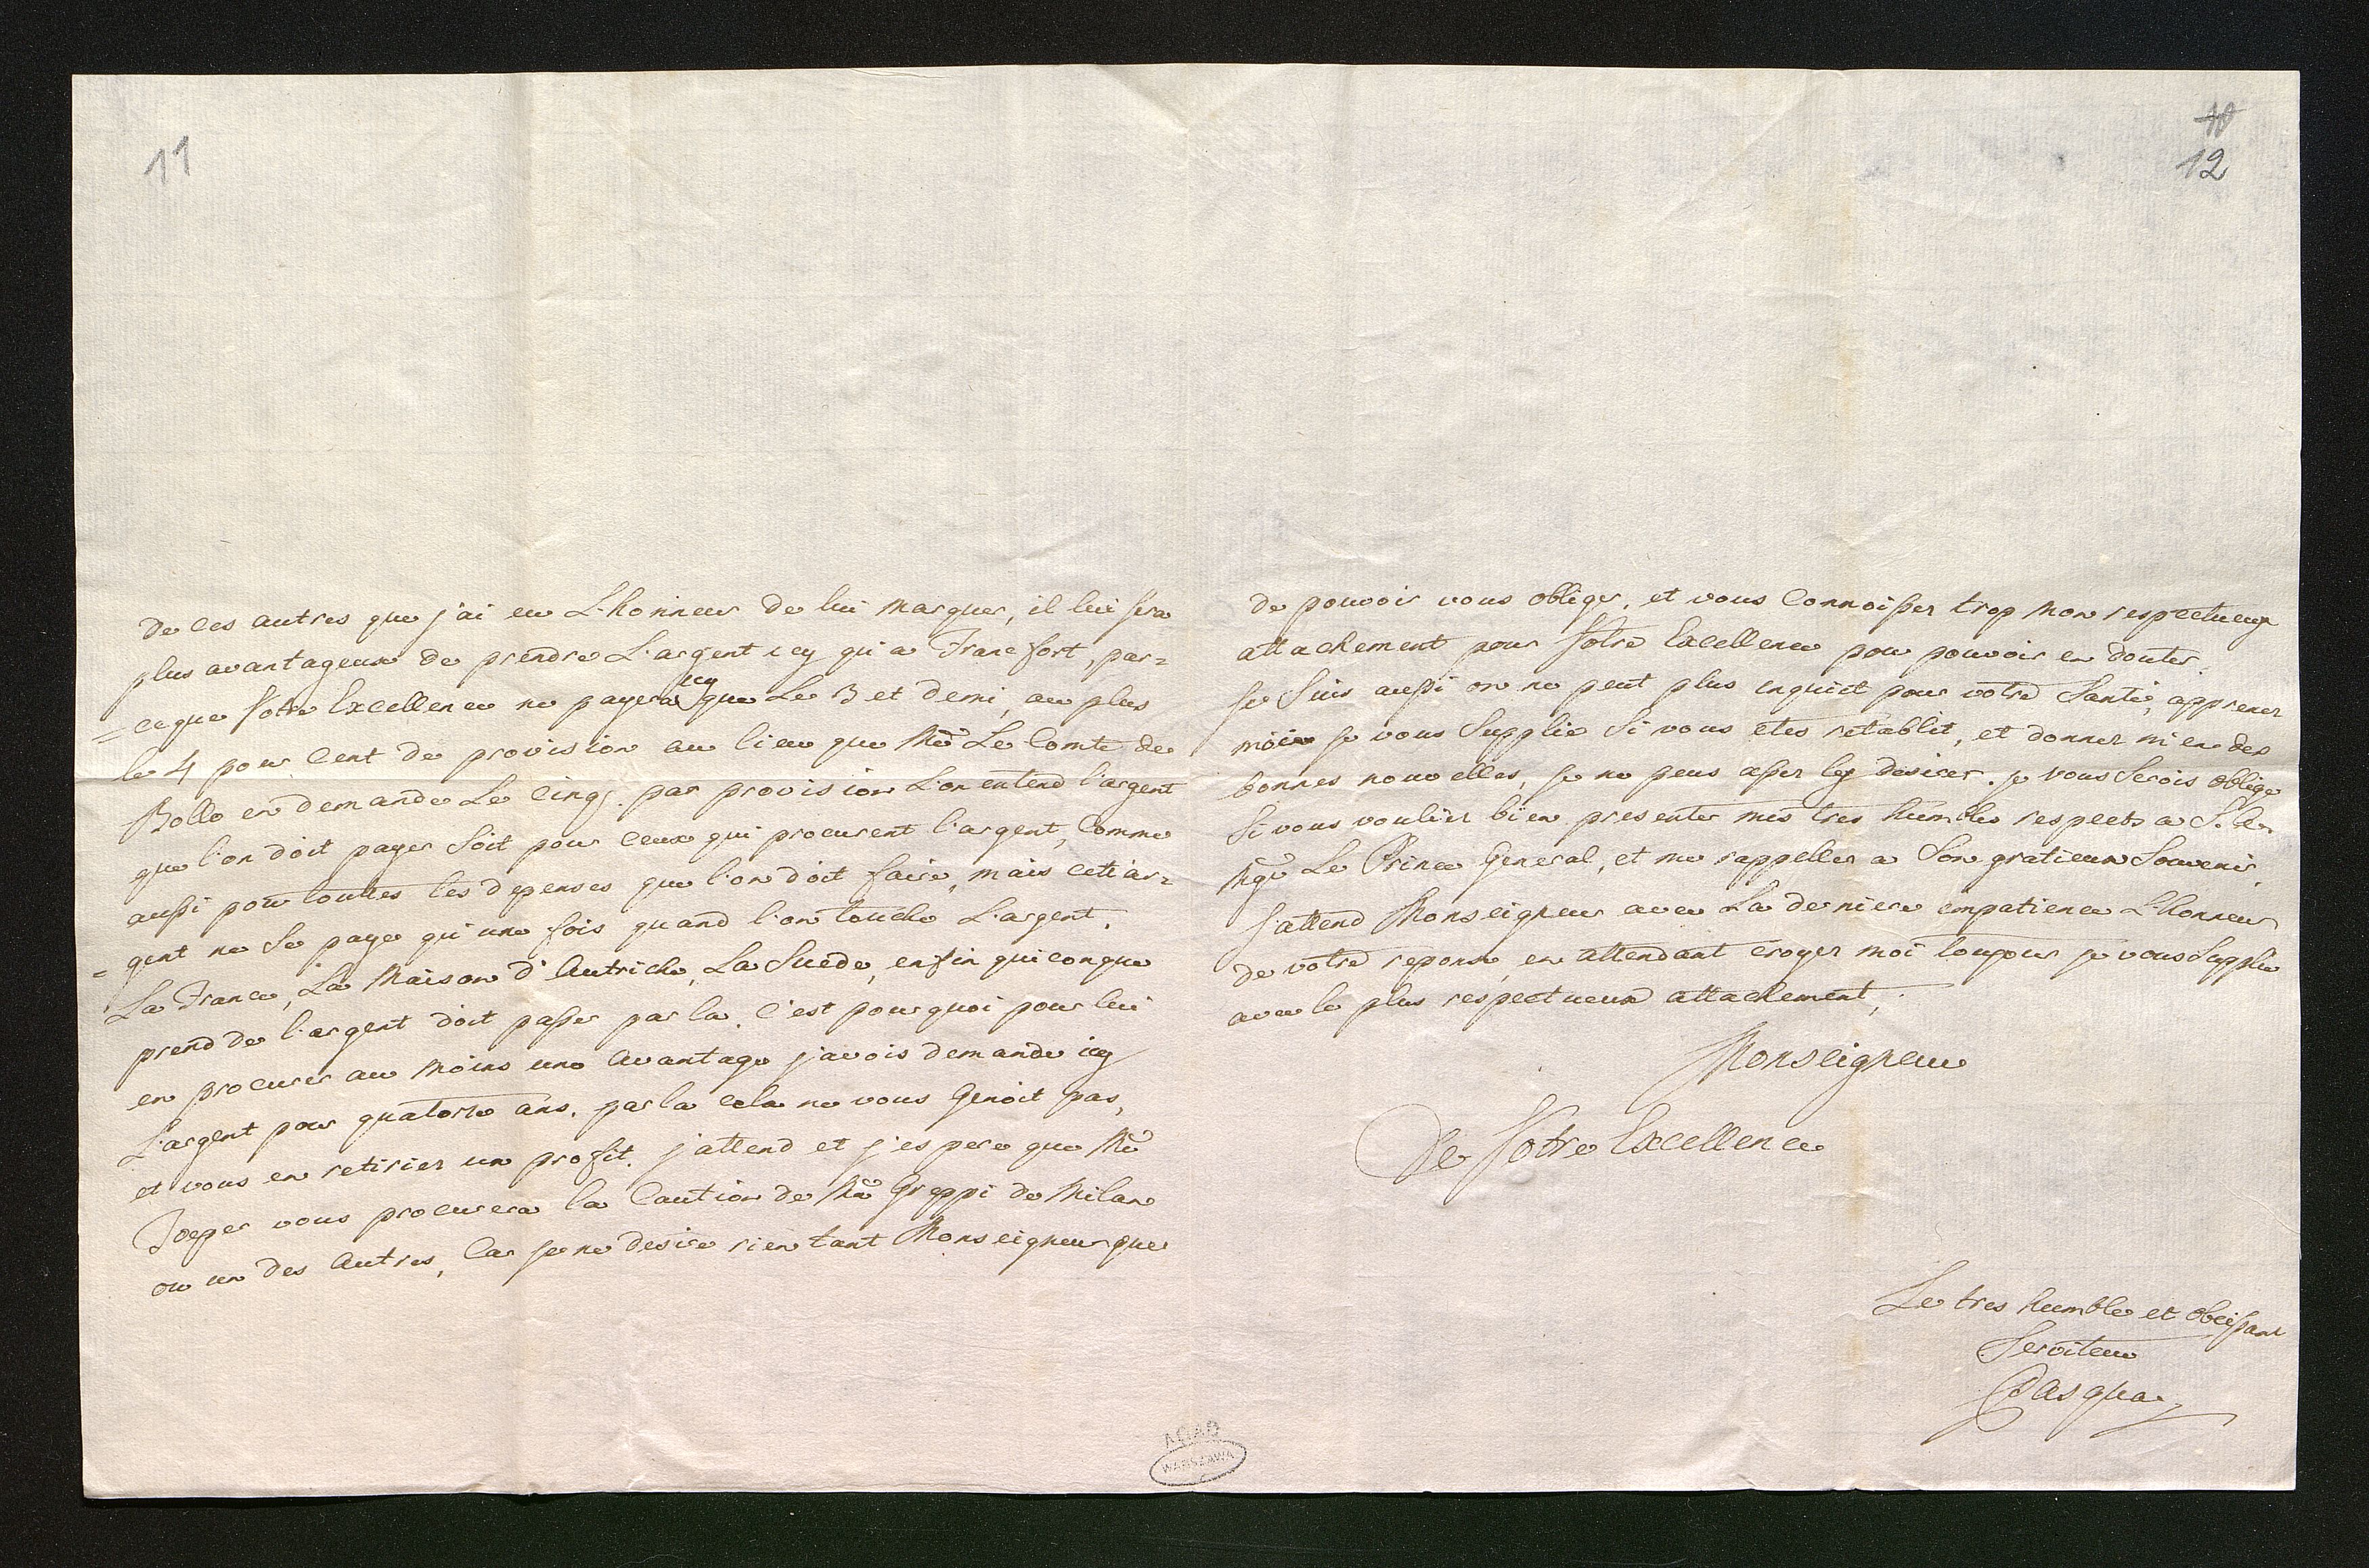 11
de ces autres que j'ai eu L'honneur de lui marquer, il lui sera
plus avantageux de prendre L'argent icy qu'a Francfort, par=
=ceque Votre Excellence ne payera icy que Le 3 et demi, au plus
le 4 pour Cent de provision au lieu que Mr Le Comte de
Bollo en demande Le Cinq. par provision L'on entend l'argent
que l'on doit payer Soit pour Ceux qui procurent l'argent, Comme
aussi pour toutes les depenses que l'on doit faire, mais cet ar=
=gent ne Se paye qu'une fois quand l'on touche L'argent.
La France, La Maison d'Autriche, La Suede, enfin quiconque
prend de l'argent doit passer par la. C'est pourquoi pour lui
en procurer au Moins une Avantage j'avois demandé icy
L'argent pour quatorze ans. par la Cela ne vous Genoit pas,
et vous en retirier un profit. j'attend et j'espere que Mr
Joeger vous procurera la Caution de Mr Greppi de Milan
ou un des Autres, Car je ne desire rien tant Monseigneur que
10
12
de pouvoir vous obliger, et vous Connoissez trop Mon respectueux
attachement pour Votre Excellence pour pouvoir en douter.
je Suis aussi on ne peut plus inquiet pour votre Santé, apprenez
moi je vous Supplie Si vous etes retablit, et donnez m'en des
bonnes nouvelles, je ne peus assez les desirer. je vous Serois obligé
Si vous vouliez bien presenter mes tres humbles respects a S. A.
Mgr Le Prince General, et me rappeller a Son gratieux Souvenir.
J'attend Monseigneur avec La derniere empatience L'honneur
de votre reponse, en attendant croyez moi toujour je vous Supplie
avec le plus respectueux attachement,
Monseigneur
De Votre Excellence
Le tres humble et obeissant
Serviteur
Pasqua
AGAD
WARSZAWA